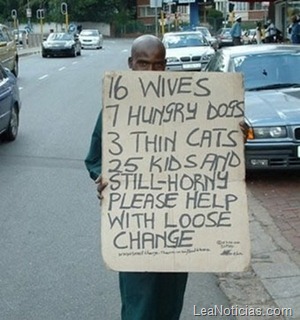 16 WIVES
7 HUNGRY DOGS
3 THIN CATS
25 KIDS AND
STILL-HORNY
PLEASE HELP
WITH LOOSE
CHANGE
LeaNoticias.com